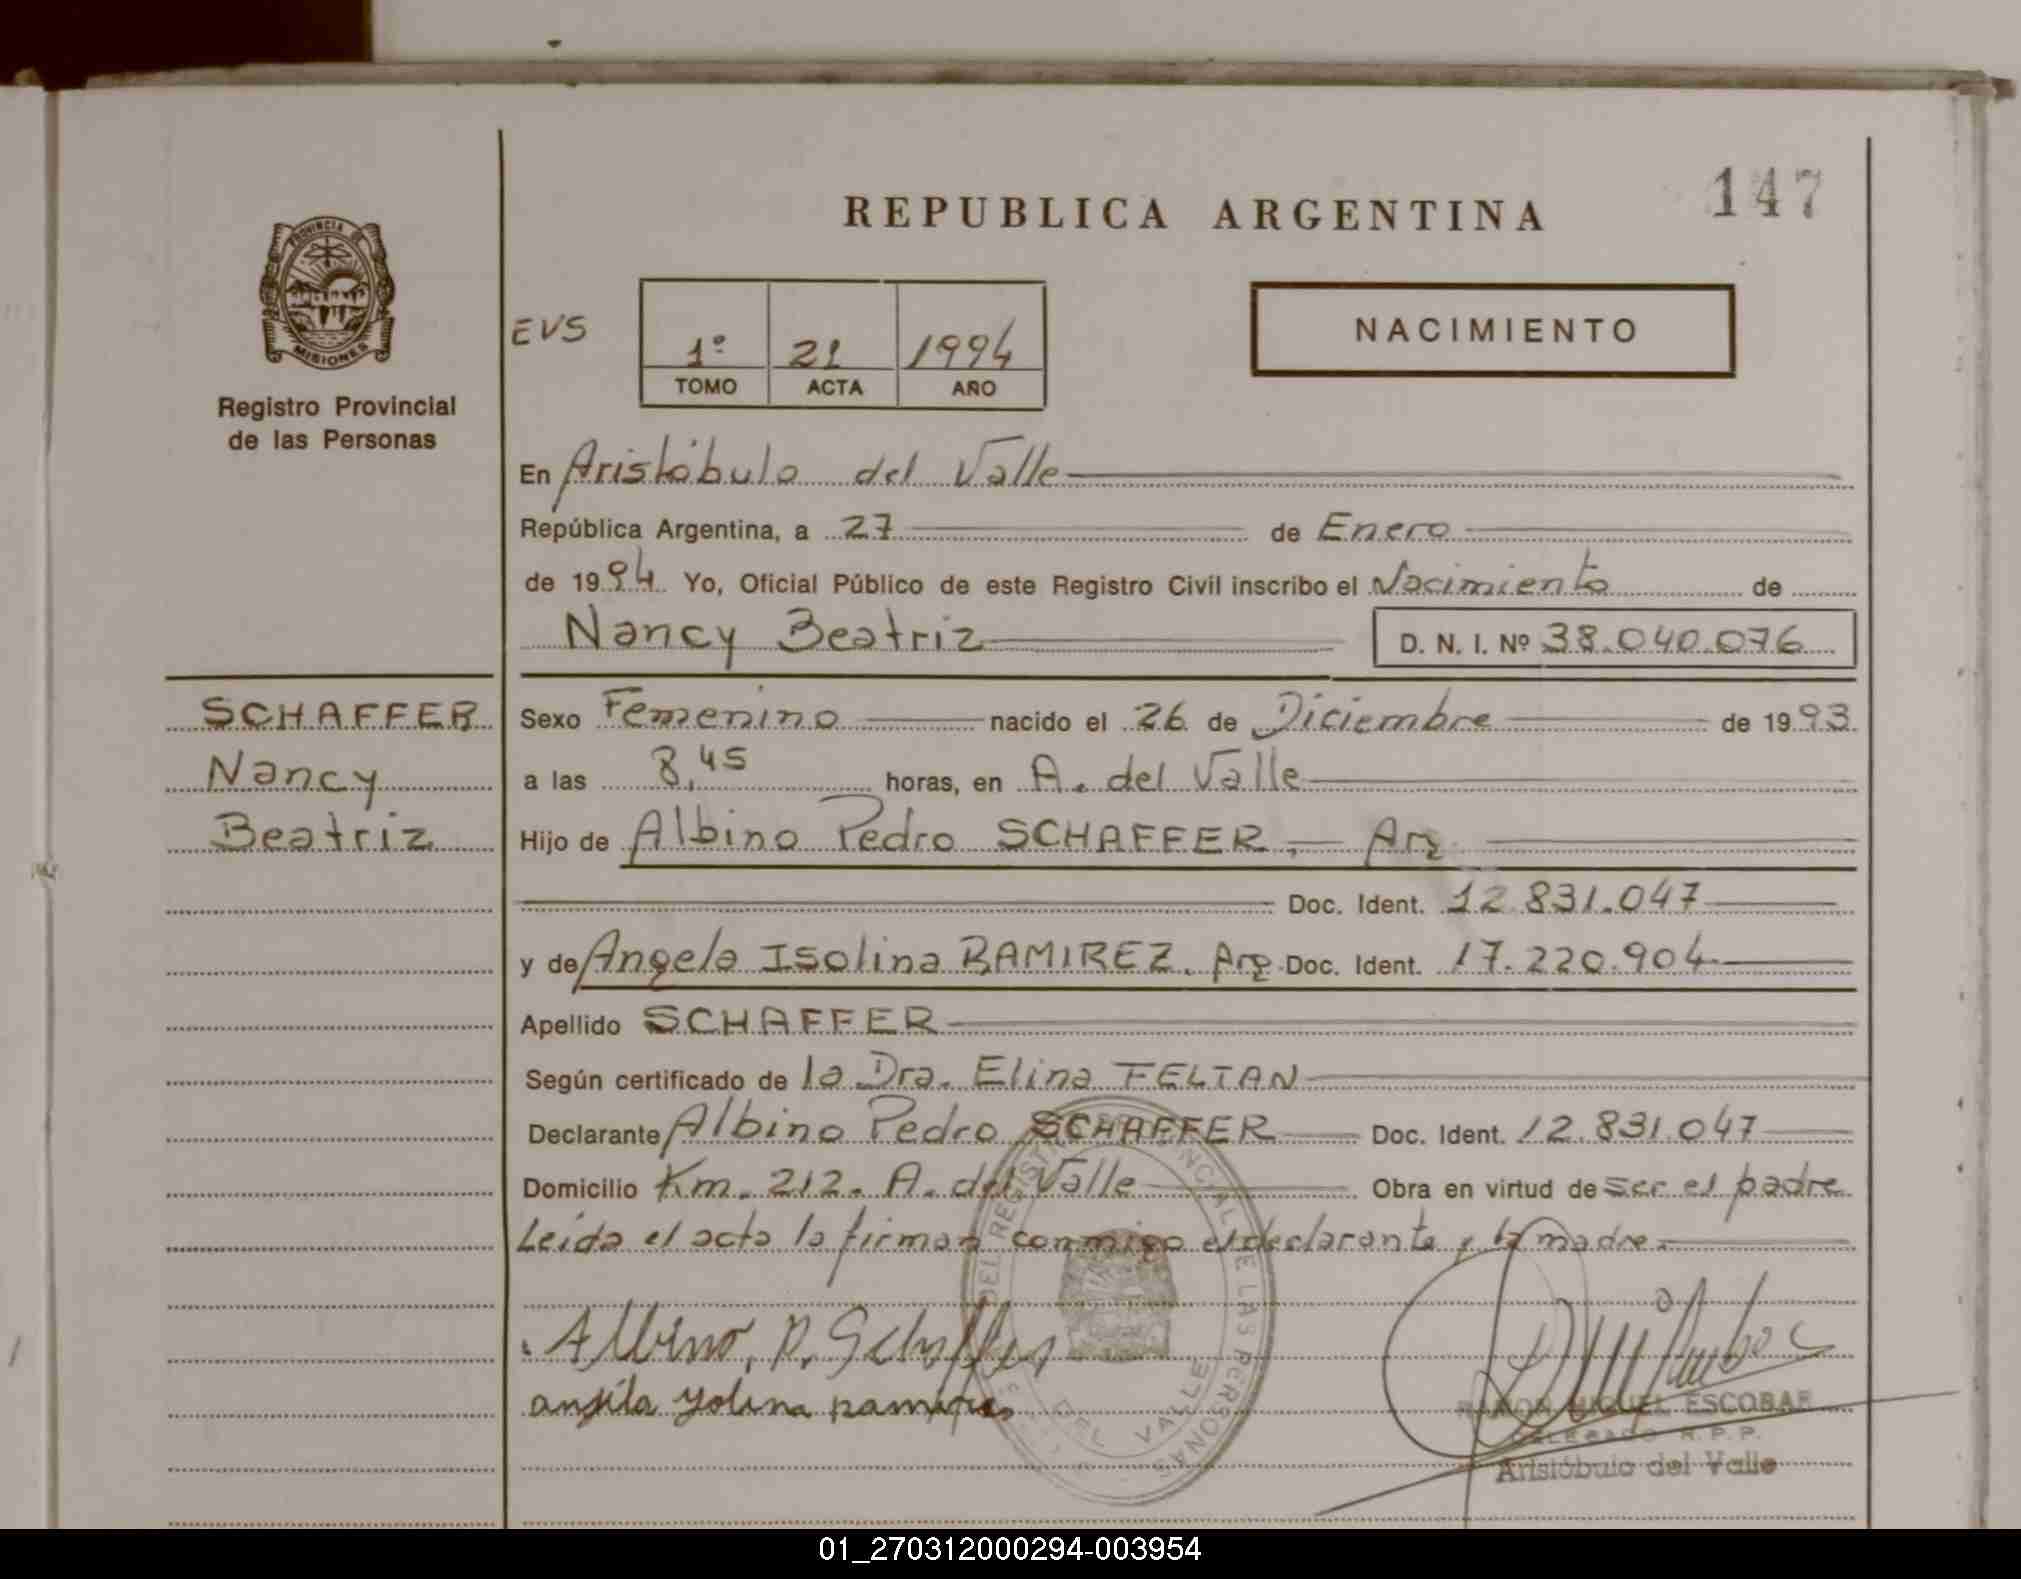 147
REPUBLICA ARGENTINA
PROVINCIA DE
MISIONES
Registro Provincial
de las Personas
EVS
1º 21 1994
TOMO ACTA AÑO
NACIMIENTO
En Aristóbulo del Valle
República Argentina, a 27 de Enero
de 1994 Yo, Oficial Público de este Registro Civil inscribo el Nacimiento de
Nancy Beatriz D. N. I. Nº 38.040.076
SCHAFFER
Nancy
Beatriz
Sexo Femenino nacido el 26 de Diciembre de 1993
a las 8,45 horas, en A. del Valle
Hijo de Albino Pedro SCHAFFER, Arg
Doc. Ident. 12.831.047
y de Angela Isolina RAMIREZ. Arg Doc. Ident. 17.220.904
Apellido SCHAFFER
Según certificado de la Dra. Elina FELTAN
Declarante Albino Pedro SCHAFFER Doc. Ident. 12.831.047
Domicilio Km. 212. A. del Valle Obra en virtud de ser el padre
Leída el acta la firman conmigo el declarante y la madre.
Albino, P. Schaffer
DEL REGISTRO PROVINCIAL DE LAS PERSONAS
DEL VALLE
RAMON MIGUEL ESCOBAR
DELEGADO R.P.P.
Aristóbulo del Valle
01_270312000294-003954